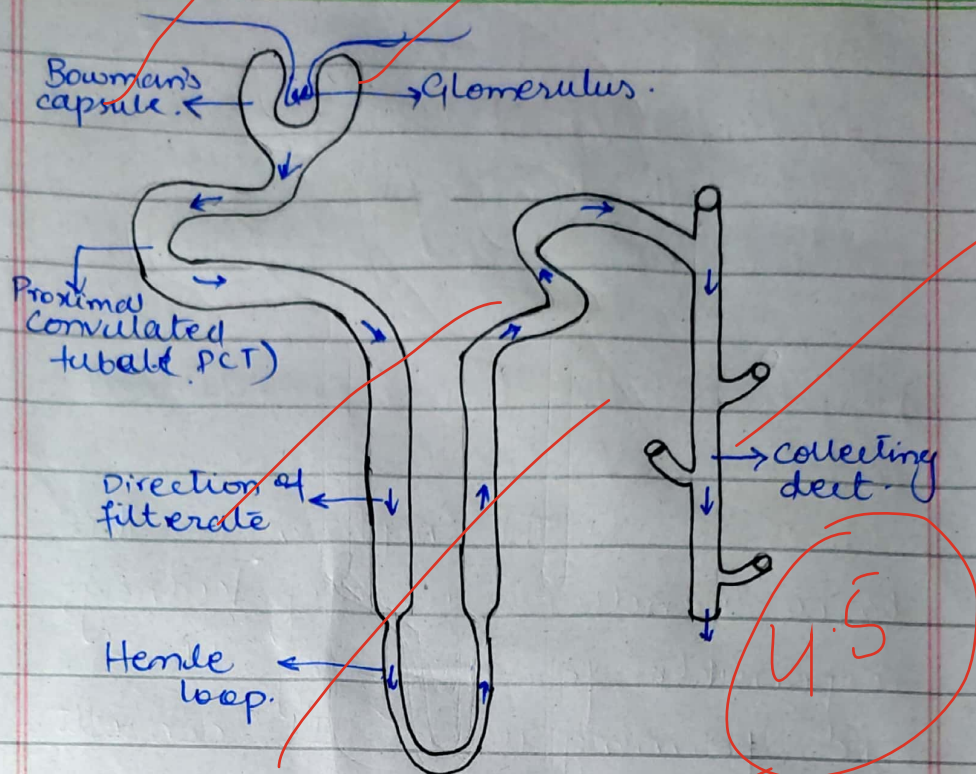 Bowman's
capsule.
Glomerulus.
Proximal
Convulated
tubale(PCT)
Direction of
filterate
collecting
dect.
Henle
loop.
4.5